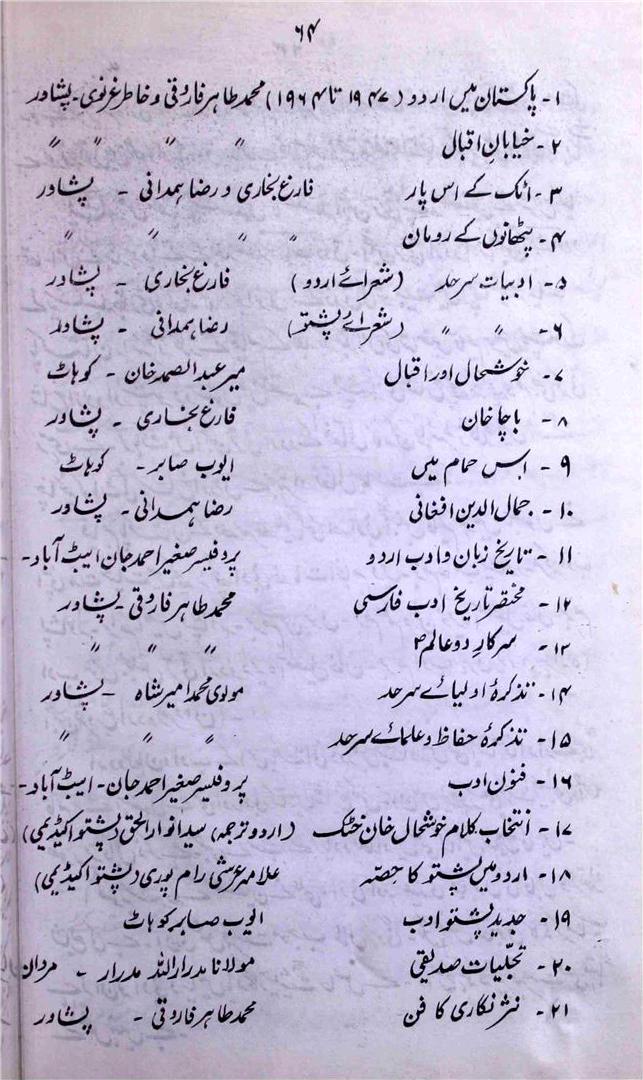 ۶۴
۱- پاکستان میں اردو (۱۹۴۷ تا ۱۹۶۴) محمد طاہر فاروقی و خاطر غزنوی - پشاور
۲- خیابانِ اقبال " " " "
۳- اٹک کے اس پار فارغ بخاری و رضا ہمدانی - پشاور
۴- پٹھانوں کے رومان " " " "
۵- ادبیات سرحد (شعرائے اردو) فارغ بخاری - پشاور
۶- " " (شعرائے پشتو) رضا ہمدانی - پشاور
۷- خوشحال اور اقبال میر عبد الصمد خان - کوہاٹ
۸- باچا خان فارغ بخاری - پشاور
۹- اس حمام میں ایوب صابر - کوہاٹ
۱۰- جمال الدین افغانی رضا ہمدانی - پشاور
۱۱- تاریخ زبان و ادب اردو پروفیسر صغیر احمد جان - ایبٹ آباد -
۱۲- مختصر تاریخ ادب فارسی محمد طاہر فاروقی - پشاور
۱۳- سرکارِ دو عالمؐ " " "
۱۴- تذکرۂ اولیائے سرحد مولوی محمد امیر شاہ - پشاور
۱۵- تذکرۂ حفاظ و علمائے سرحد " " "
۱۶- فنون ادب پروفیسر صغیر احمد جان - ایبٹ آباد -
۱۷- انتخاب کلام خوشحال خان خٹک (اردو ترجمہ) سید انوار الحق (پشتو اکیڈیمی)
۱۸- اردو میں پشتو کا حصّہ علامہ عرشی رام پوری (پشتو اکیڈیمی)
۱۹- جدید پشتو ادب ایوب صابر کوہاٹ
۲۰- تجلّیات صدیقی مولانا مدرار اللہ مدرار - مردان
۲۱- نثر نگاری کا فن محمد طاہر فاروقی - پشاور